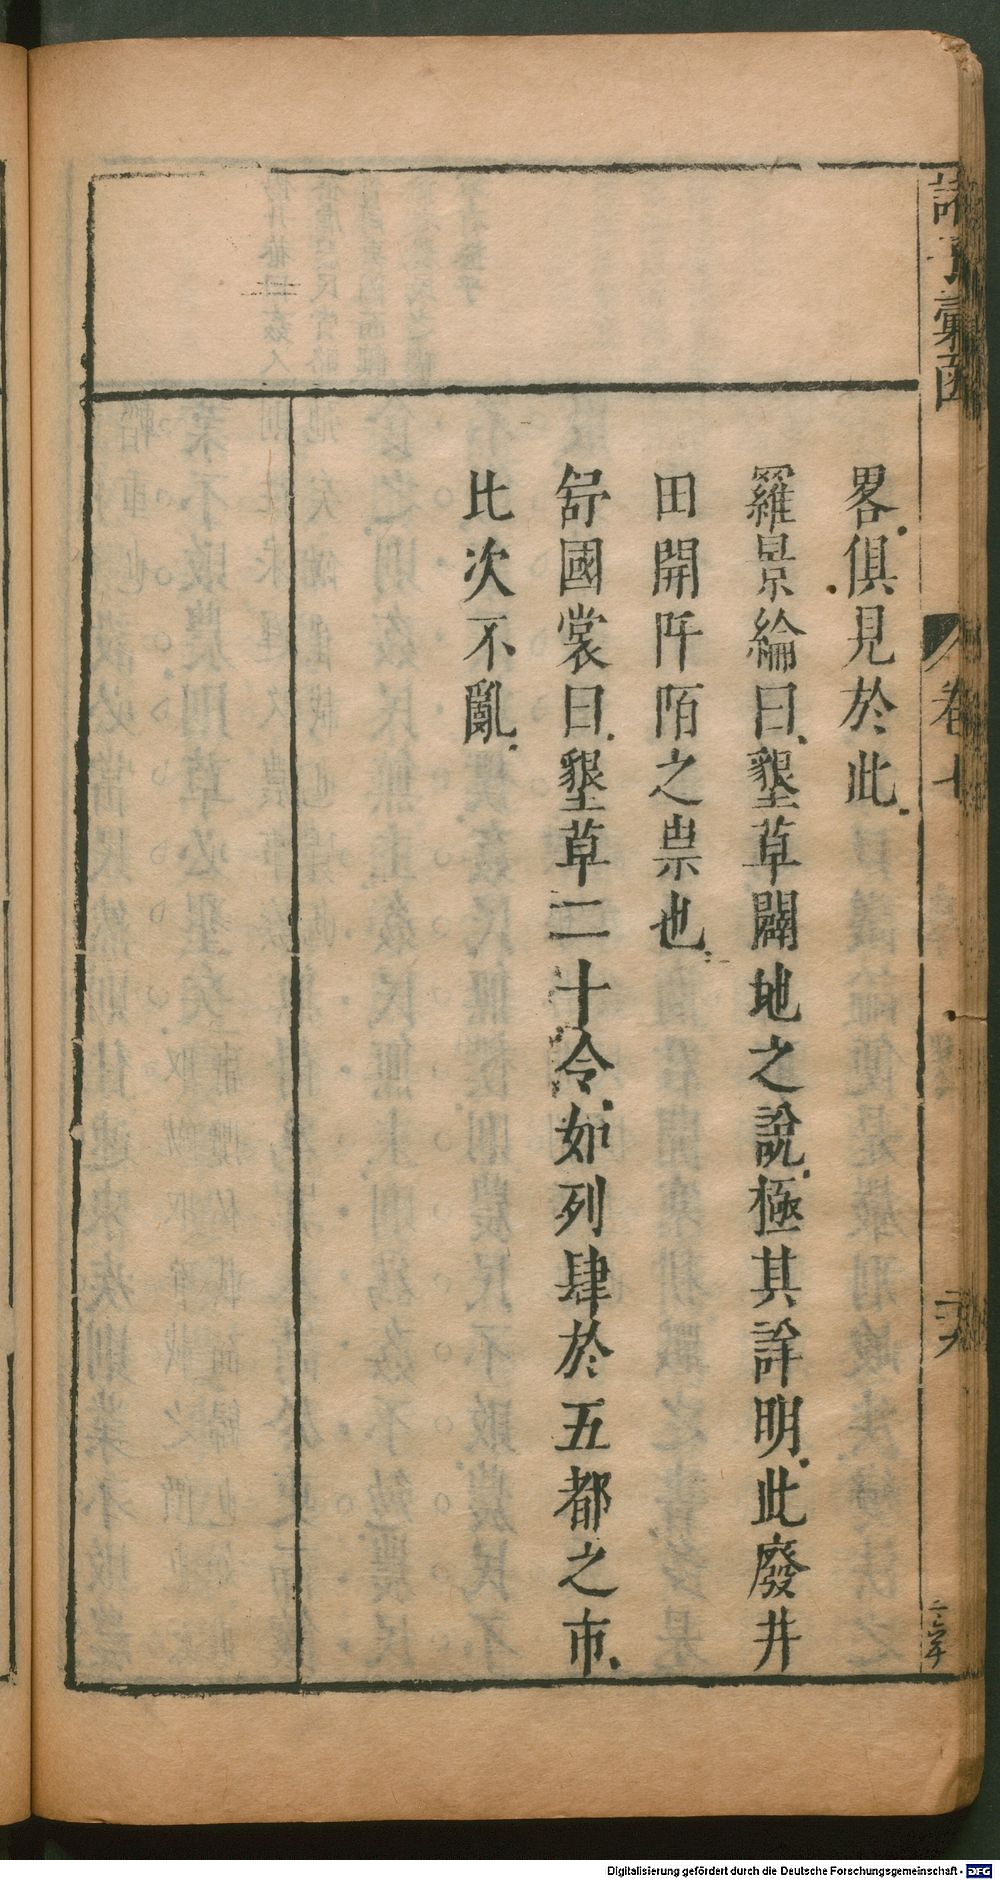 畧俱見於此
羅景綸曰墾草闢地之說極其詳明此廢井
田開阡陌之祟也
舒國裳曰墾草二十令如列肆於五都之市
比次不亂
諸子彙函
卷七
Digitalisierung gefördert durch die Deutsche Forschungsgemeinschaft - DFG